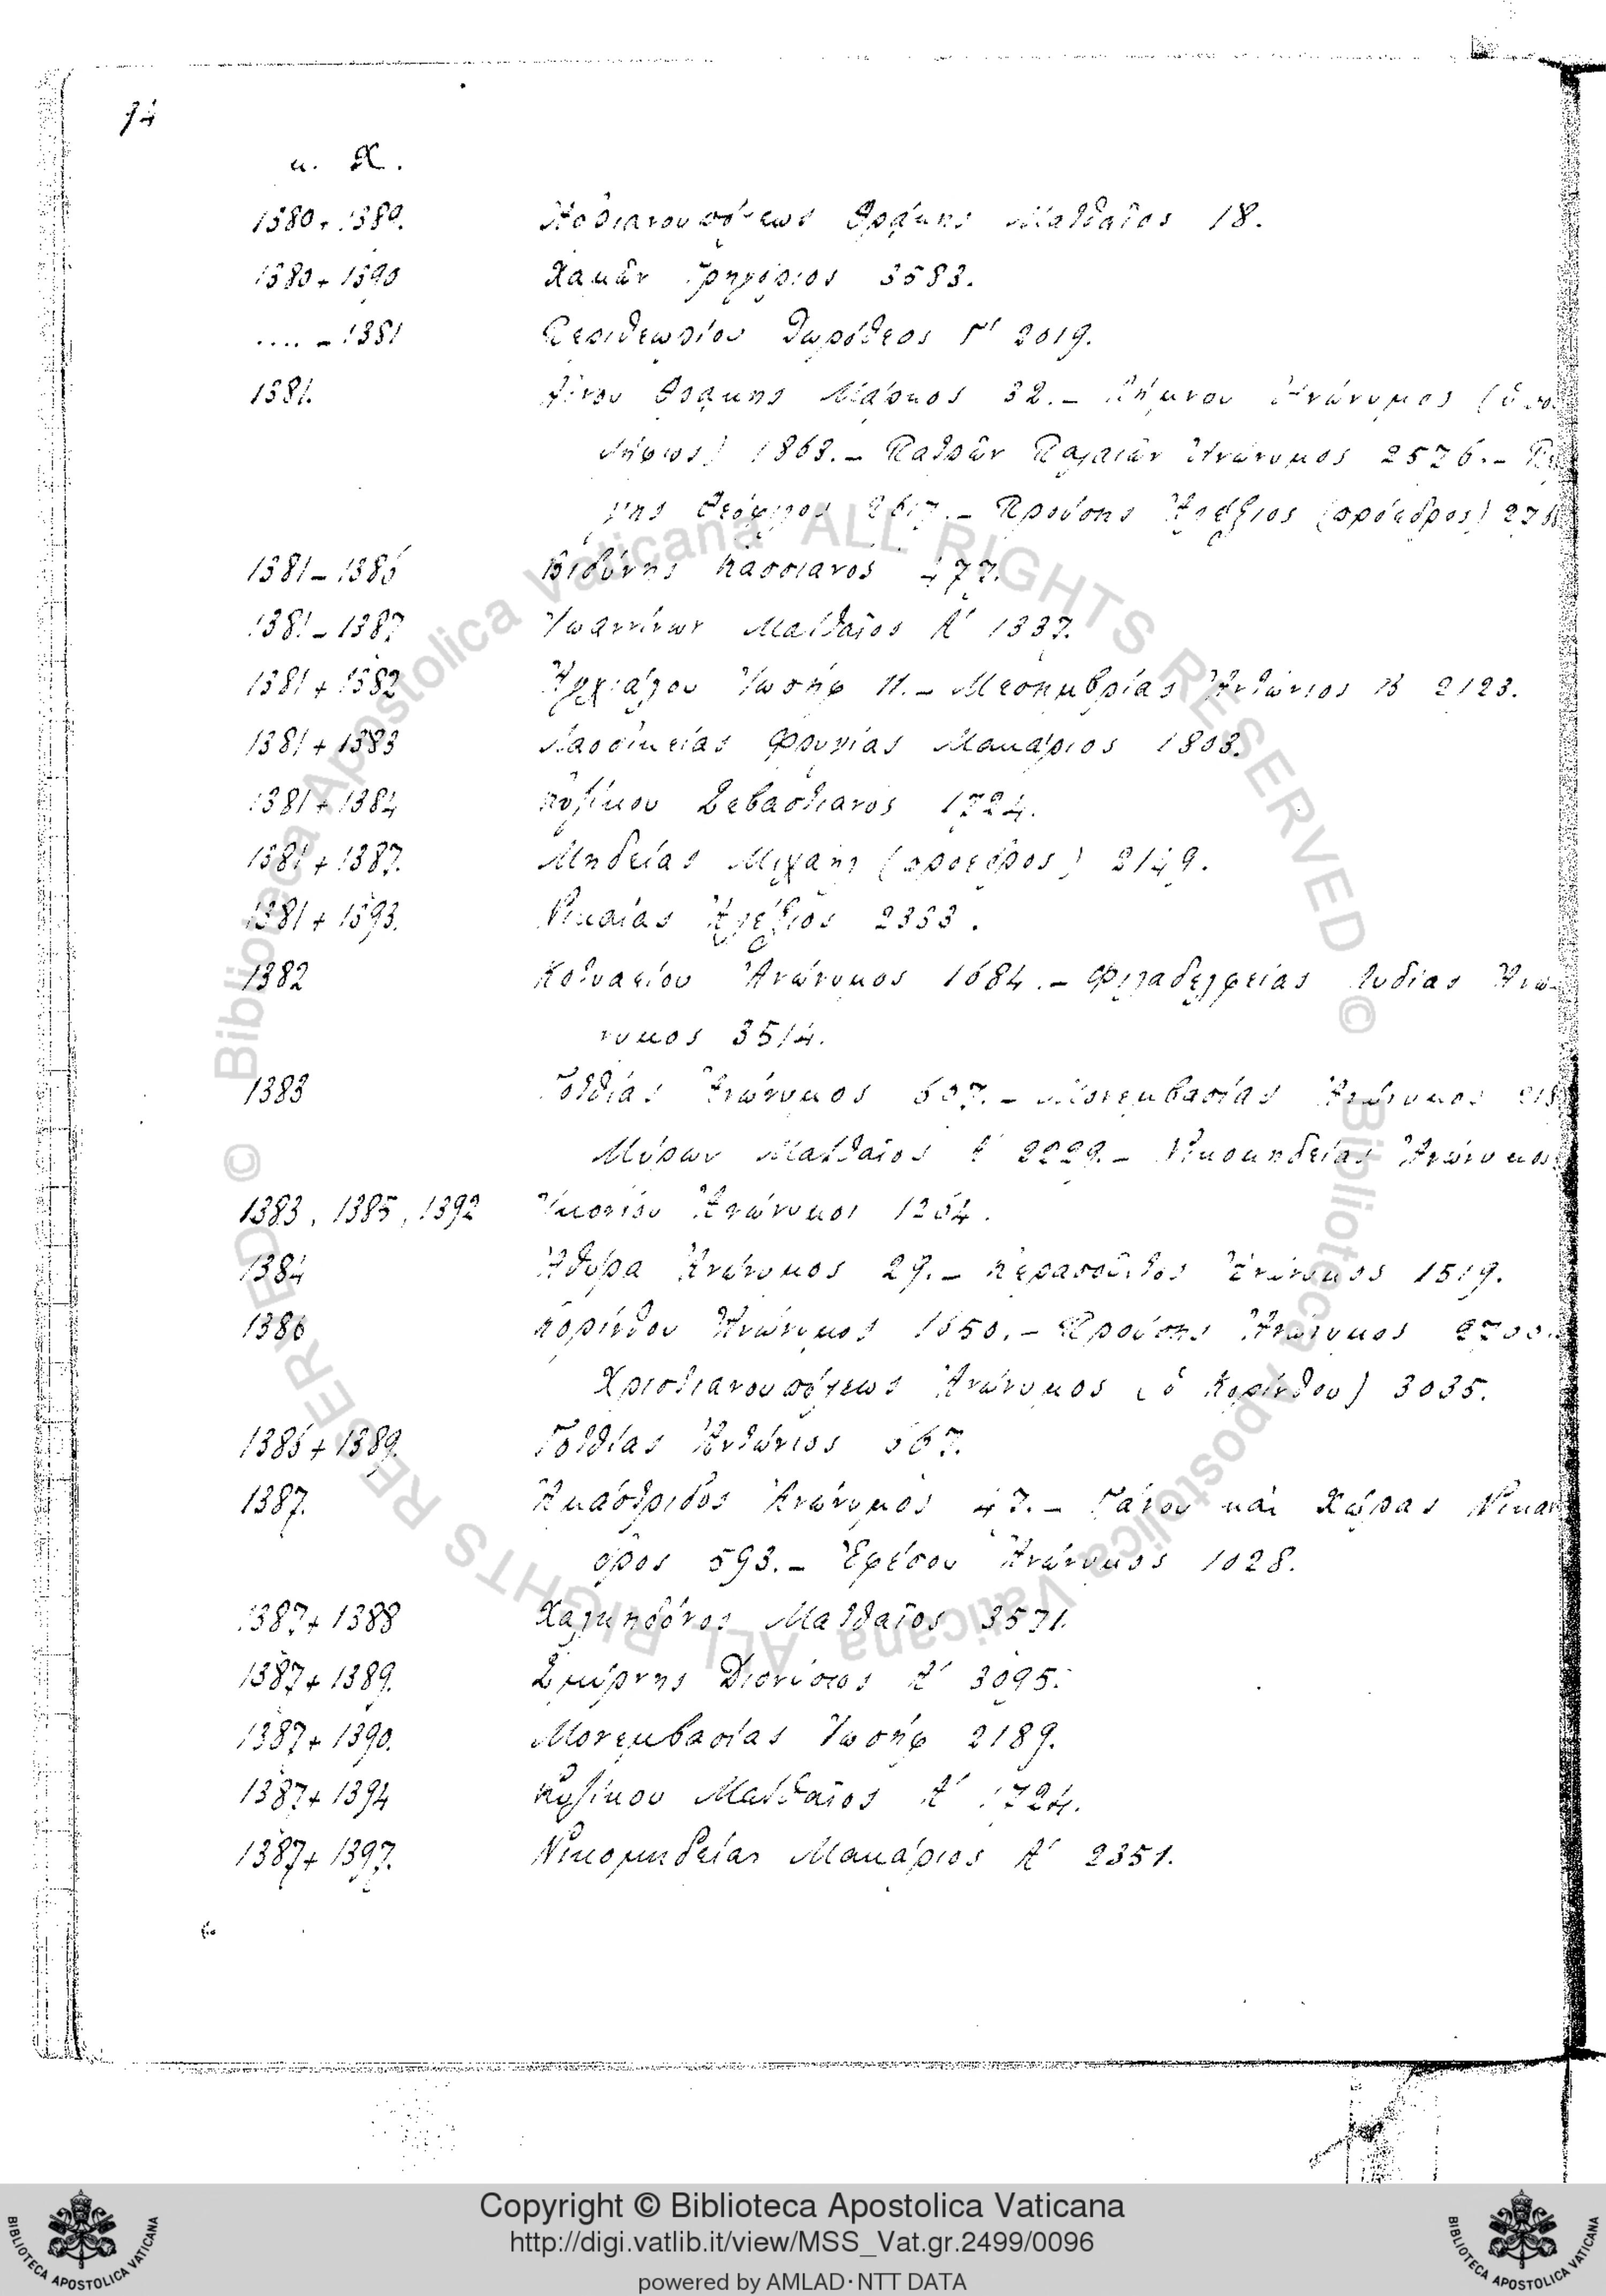 74
μ. Χ.
1380+1389. Ἀδριανουπόλεως Θρᾴκης Ματθαῖος 18.
1380+1390 Χαμᾶν Γρηγόριος 3583.
.... – 1381 Περιθεωρίου Δωρόθεος Γ' 2019.
1381. Αἴνου Θρᾴκης Μάρκος 32. – Λήμνου Ἀνώνυμος (ὑπο
ψήφιος) 1863. – Πατρῶν Παλαιῶν Ἀνώνυμος 2576. –
Θεόφιλος 2617. – Προύσης Ἀλέξιος (πρόεδρος)
1381 – 1386 Βιδύνης Κασσιανός 477.
1381 – 1387 Ἰωαννίνων Ματθαῖος Α' 1337.
1381+1382 Ἀγχιάλου Ἰωσήφ 11. – Μεσημβρίας Ἀντώνιος Β 2123.
1381+1383 Λαοδικείας Φρυγίας Μακάριος 1803.
1381+1384 Κυζίκου Σεβαστιανός 1724.
1381+1387. Μηδείας Μιχαήλ (πρόεδρος) 2149.
1381+1393. Νικαίας Ἀλέξιος 2333.
1382 Κοτυαείου Ἀνώνυμος 1684. – Φιλαδελφείας Λυδίας Ἀνώ-
νυμος 3514.
1383 Γοτθίας Ἀνώνυμος 607. – Μονεμβασίας Ἀνώνυμος
Μύρων Ματθαῖος Α' 2229. – Νικομηδείας Ἀνώνυμος
1383, 1385, 1392 Ἰκονίου Ἀνώνυμοι 1264.
1384 Ἀθύρα Ἀνώνυμος 29. – Κερασοῦντος Ἀνώνυμος 1519.
1386 Κορίνθου Ἀνώνυμος 1650. – Προύσης Ἀνώνυμος 2700.
Χριστιανουπόλεως Ἀνώνυμος (ὁ Κορίνθου) 3035.
1386+1389. Γοτθίας Ἀντώνιος 567.
1387. Ἀμάστριδος Ἀνώνυμος 47. – Γάνου καὶ Χώρας Νικάν
ορος 593. – Ἐφέσου Ἀνώνυμος 1028.
1387+1388 Χαλκηδόνος Ματθαῖος 3571.
1387+1389. Σμύρνης Διονύσιος Α' 3095.
1387+1390. Μονεμβασίας Ἰωσήφ 2189.
1387+1394 Κυζίκου Ματθαῖος Α' 1724.
1387+1397. Νικομηδείας Μακάριος Α' 2351.
© Biblioteca Apostolica Vaticana ALL RIGHTS RESERVED © Biblioteca Apostolica Vaticana ALL RIGHTS RESERVED
Copyright © Biblioteca Apostolica Vaticana
http://digi.vatlib.it/view/MSS_Vat.gr.2499/0096
powered by AMLAD·NTT DATA
BIBLIOTECA APOSTOLICA VATICANA
BIBLIOTECA APOSTOLICA VATICANA